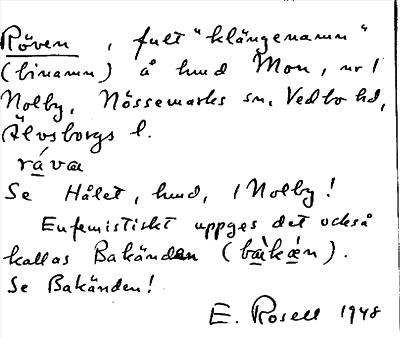 Röven, fult "klängenamn"
(binamn) å hmd Mon, nr 1
Nolby, Nössemarks sn, Vedbo hd,
Älvsborgs l.
rá̱va
Se Hålet, hmd, 1 Nolby!
Eufemistiskt uppges det också
kallas Bakänden (bæ̀kæ̀n).
Se Bakänden!
E. Rosell 1948